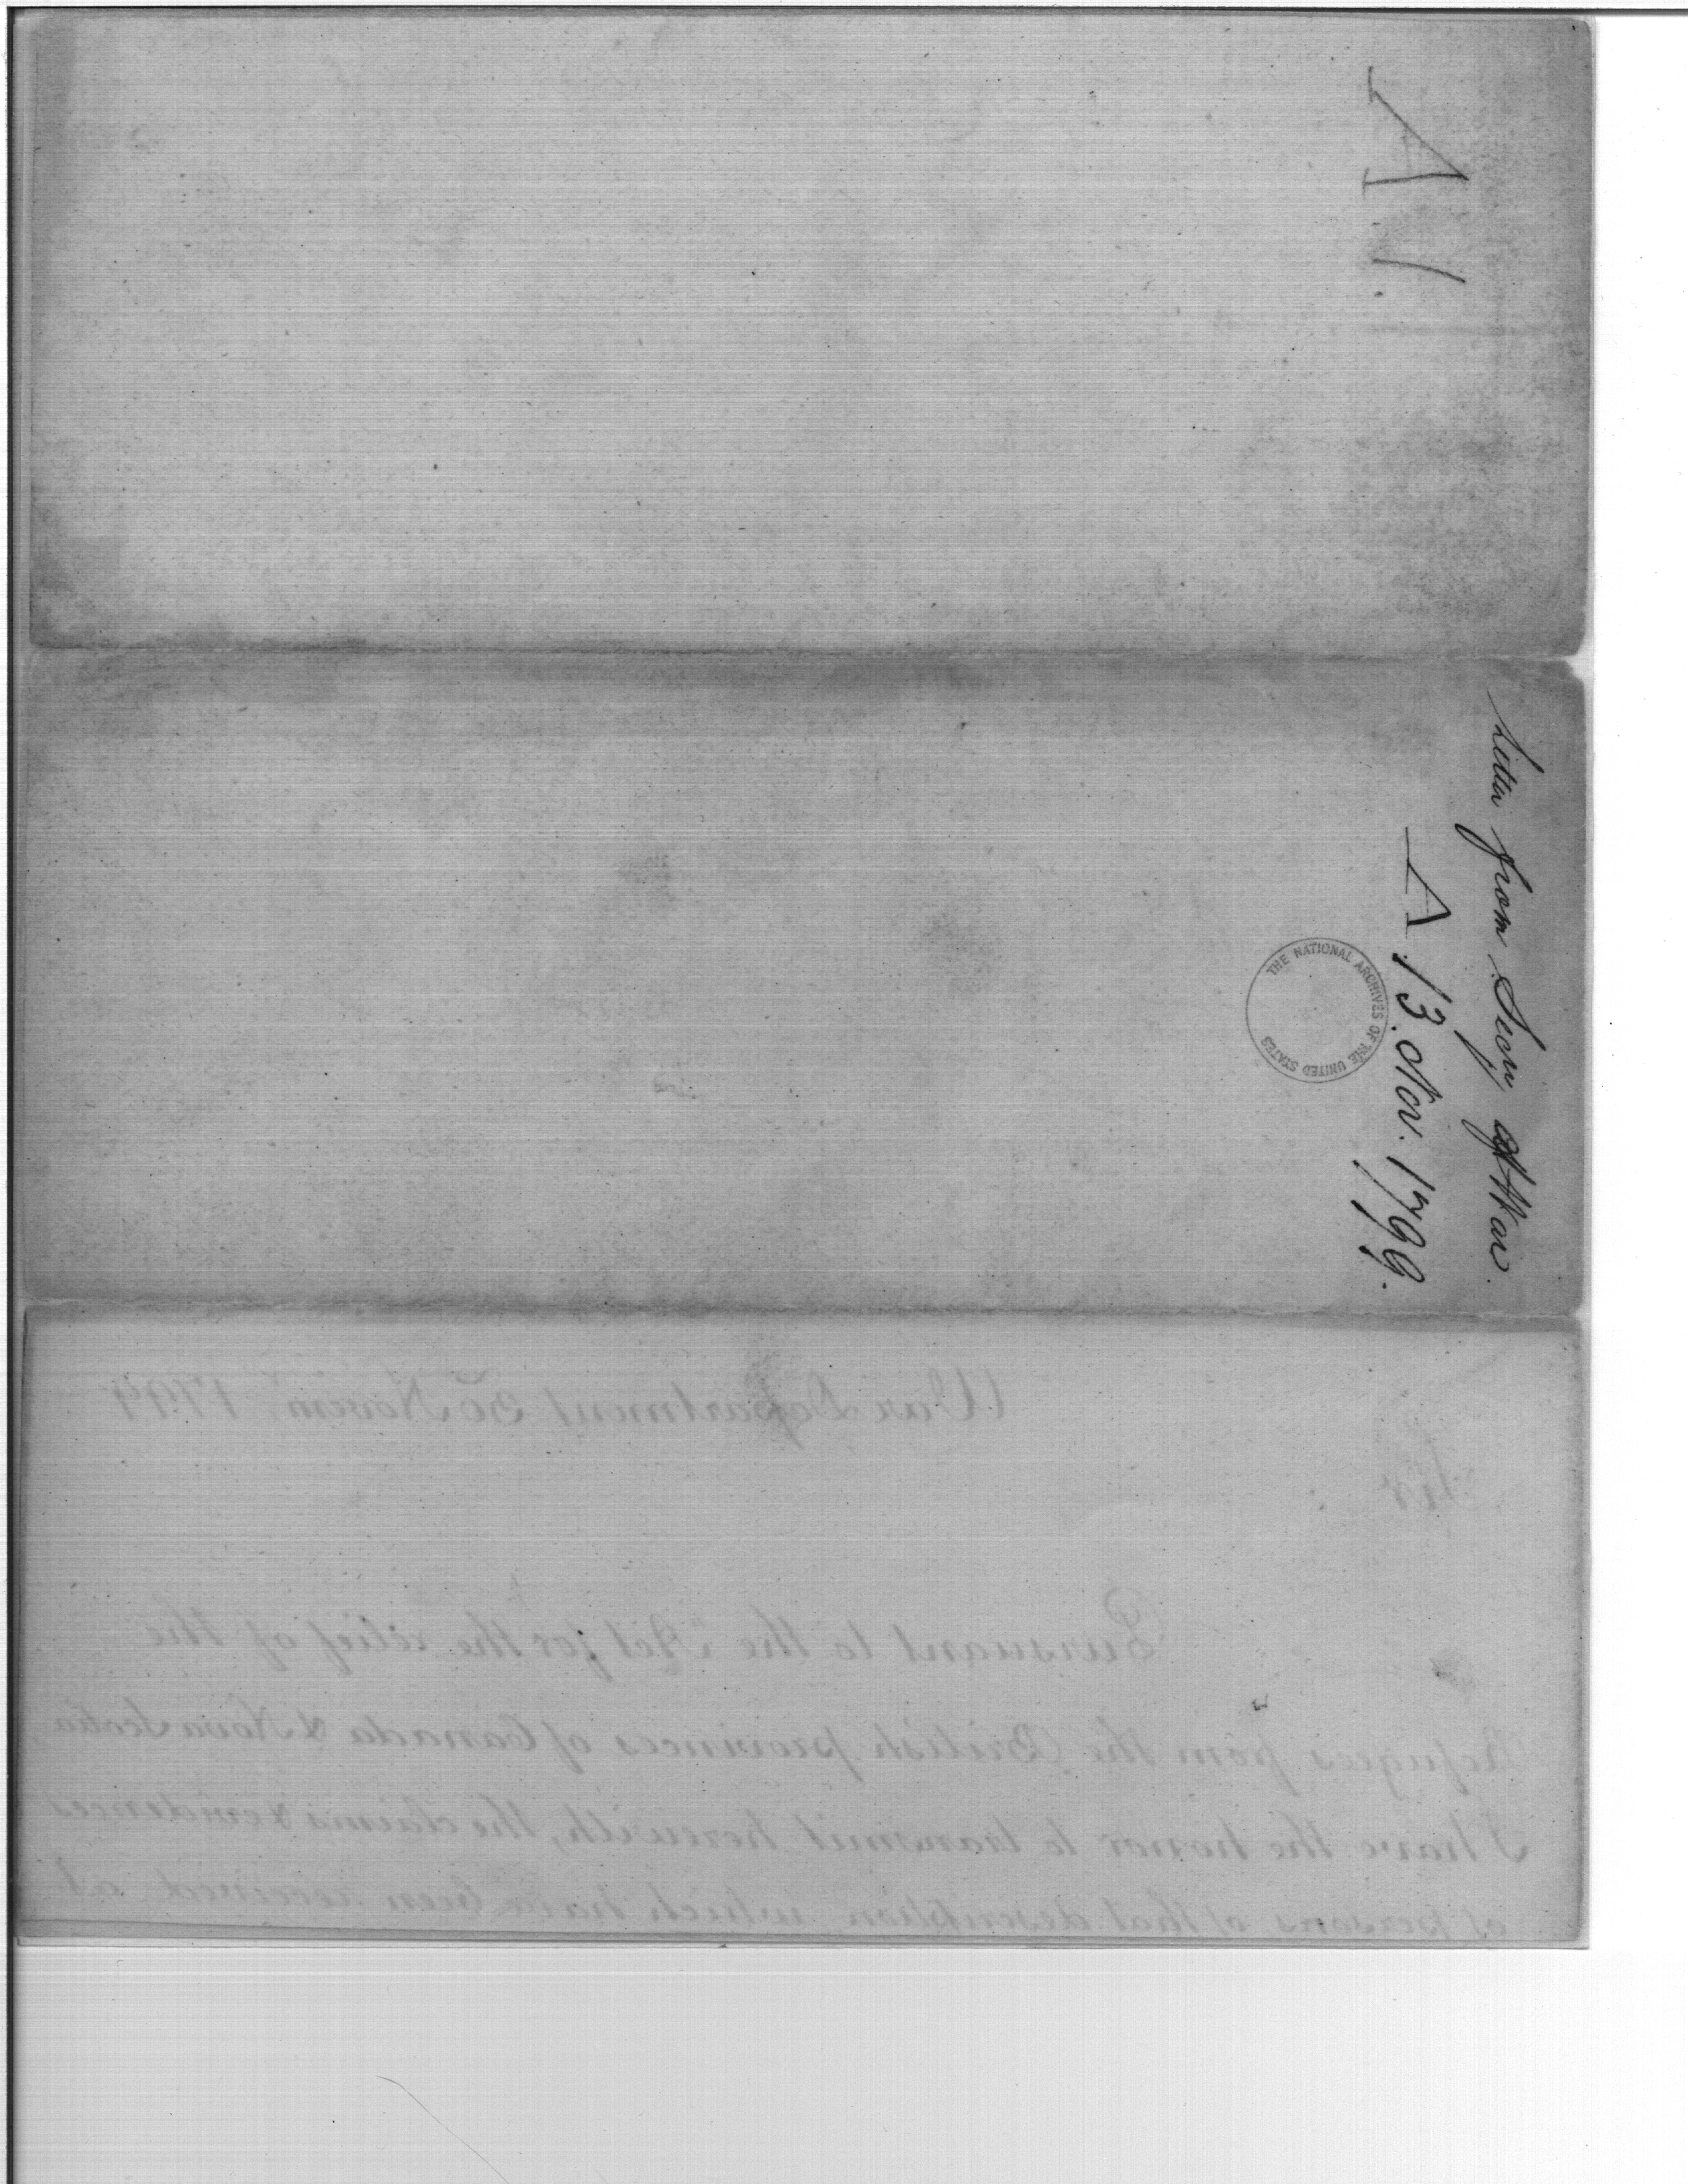 A
Letter from Secy of War.
A 13 Nov. 1799.
THE NATIONAL ARCHIVES OF THE UNITED STATES
War Department Novem. 1799
Sir
Pursuant to the "Act for the relief of the
Refugees from the British provinces of Canada & Nova Scotia
I have the honor to transmit herewith, the claims & evidences
of persons of that description which have been received at